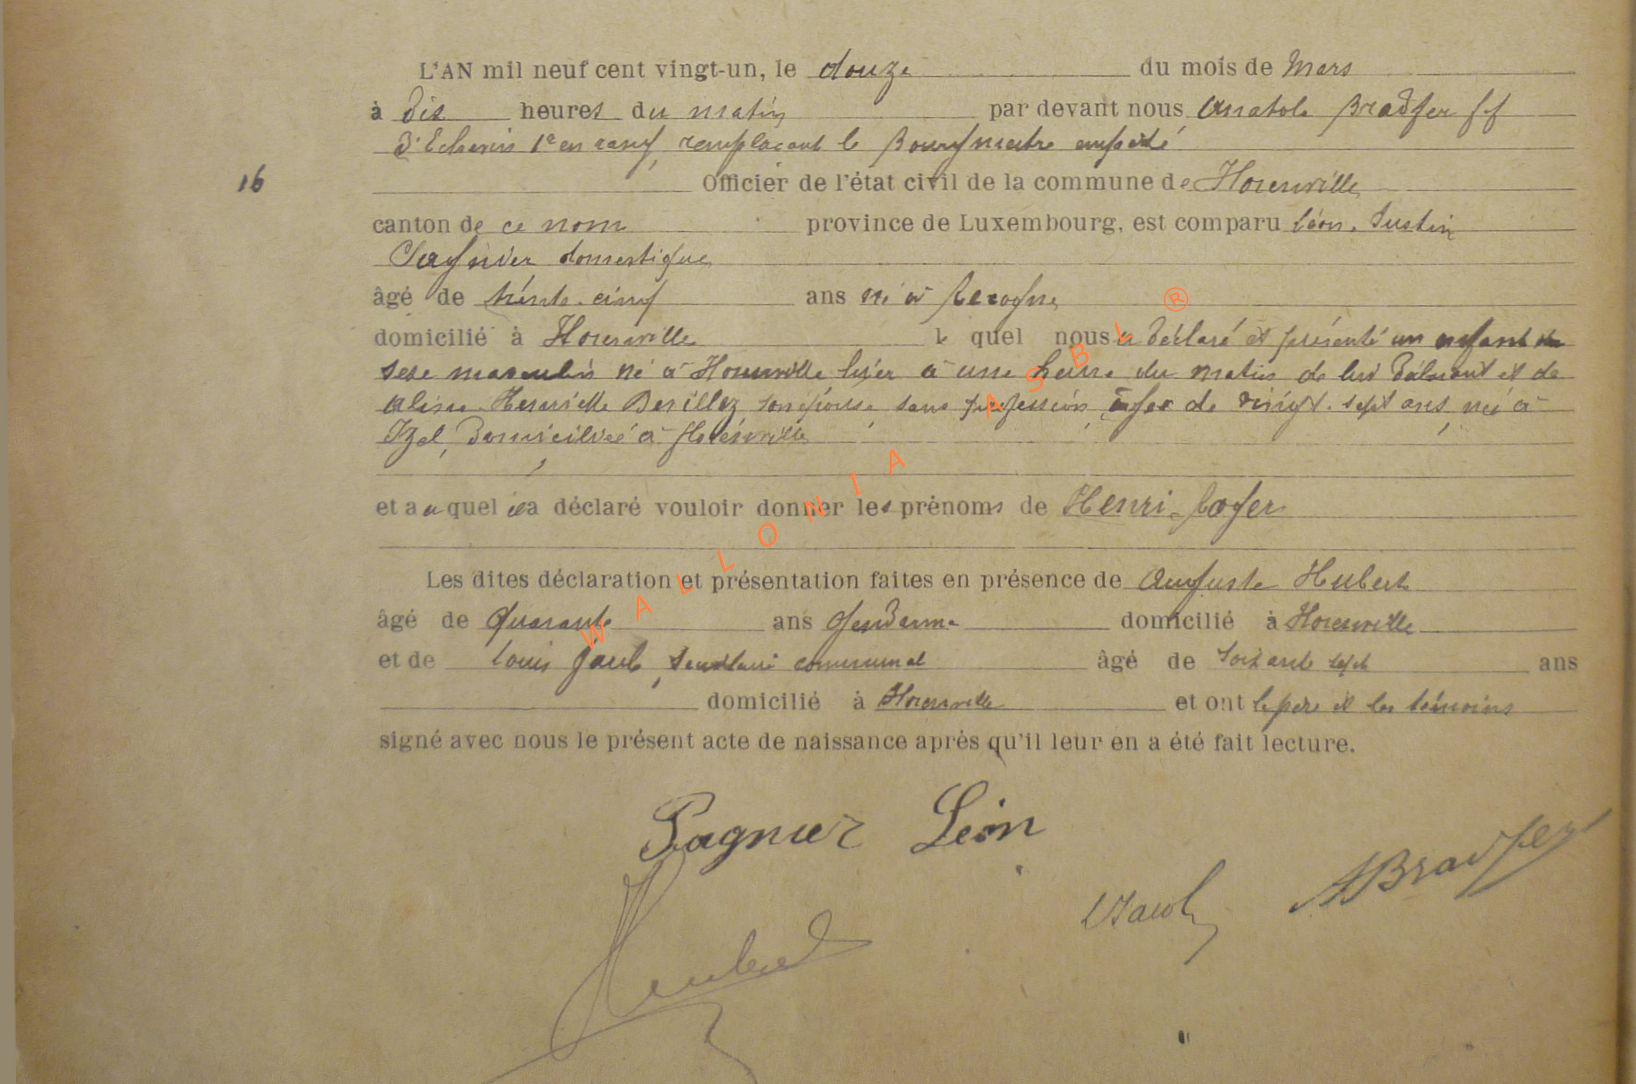 L'AN mil neuf cent vingt-un, le douze du mois de Mars
à dix heures du matin par devant nous Anatole Bradfer ff
d'Echevin 1er en rang, remplaçant le Bourgmestre empêché
16 Officier de l'état civil de la commune de Florenville
canton de ce nom province de Luxembourg, est comparu Léon, Justin
domestique
âgé de trente-cinq ans né à
domicilié à Florenville le quel nous a déclaré et présenté un enfant du
sexe masculin né à Florenville hier à une heure du matin de lui Déclarant et de
Henriette son épouse, sans profession, âgée de vingt-sept ans, née à
Izel, Domiciliée à Florenville
et auquel il a déclaré vouloir donner les prénoms de Henri-
Les dites déclaration et présentation faites en présence de Auguste Hubert
âgé de quarante ans Gendarme domicilié à Florenville
et de Louis Jacob, secrétaire communal âgé de soixante sept ans
domicilié à Florenville et ont le père et les témoins
signé avec nous le présent acte de naissance après qu'il leur en a été fait lecture.
Pagnier Léon
LJacob
ABradfer
Hubert
WALLONIA ASBL ®